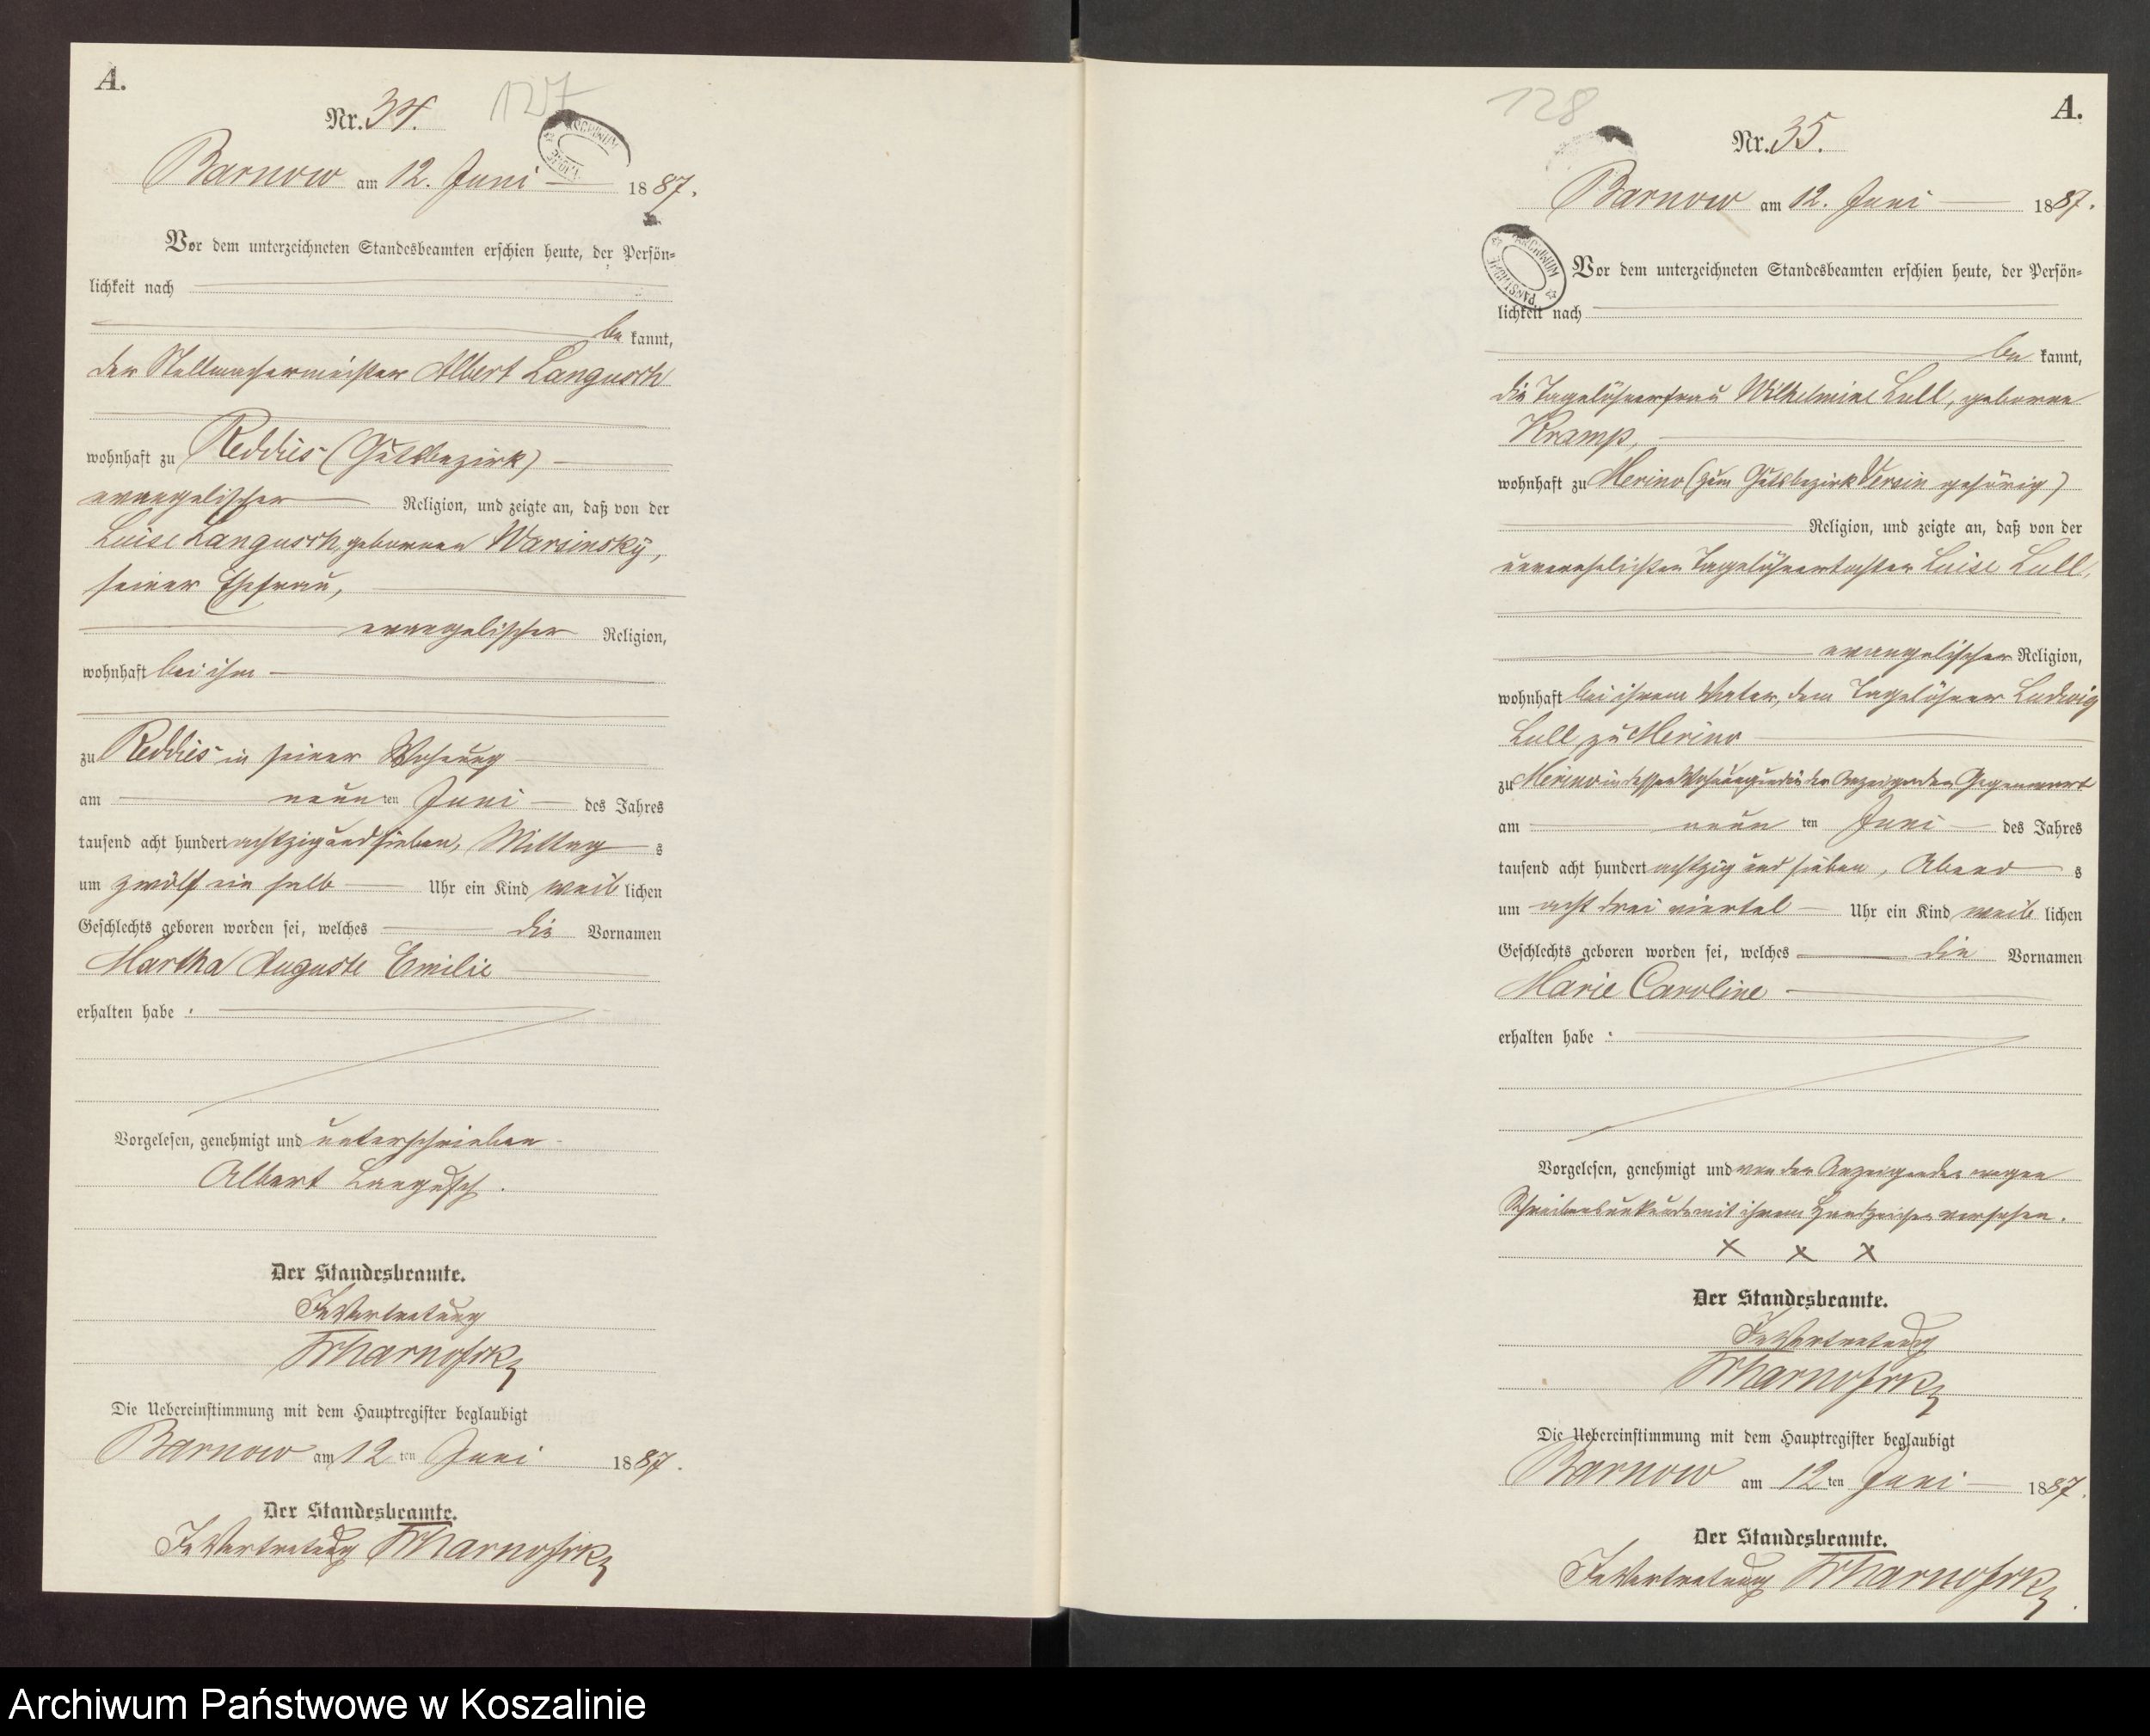 A.
127
Nr. 34.
Barnow am 12. Juni 1887.
Vor dem unterzeichneten Standesbeamten erschien heute, der Persön-
lichkeit nach
be kannt,
der Stellmachermeister Albert Langusch
wohnhaft zu Reddies (Gutsbezirk)
evangelischer Religion, und zeigte an, daß von der
Luise Langusch, geborenen Warsinsky,
seiner Ehefrau,
evangelischer Religion,
wohnhaft bei ihm
zu Reddies in seiner Wohnung
am neun ten Juni des Jahres
tausend acht hundert achtzig und sieben, Mittag s
um zwölf ein halb Uhr ein Kind weib lichen
Geschlechts geboren worden sei, welches die Vornamen
Martha Auguste Emilie
erhalten habe.
Vorgelesen, genehmigt und unterschrieben
Albert Langusch.
Der Standesbeamte.
In Vertretung
Die Uebereinstimmung mit dem Hauptregister beglaubigt
Barnow am 12 ten Juni 1887.
Der Standesbeamte.
In Vertretung
128
A.
Nr. 35.
Barnow am 12. Juni 1887.
ARCHIWUM PAŃSTWOWE
Vor dem unterzeichneten Standesbeamten erschien heute, der Persön-
lichkeit nach
be kannt,
die Tagelöhnerfrau Wilhelmine Lull, geborene
Kramp,
wohnhaft zu Merino (zum Gutsbezirk Versin gehörig)
Religion, und zeigte an, daß von der
unverehelichten Tagelöhnertochter Luise Lull,
evangelischer Religion,
wohnhaft bei ihrem Vater, dem Tagelöhner Ludwig
Lull zu Merino
zu Merino in dessen Wohnung und in der Anzeigenden Gegenwart
am neun ten Juni des Jahres
tausend acht hundert achtzig und sieben, Abend s
um acht drei viertel Uhr ein Kind weib lichen
Geschlechts geboren worden sei, welches die Vornamen
Marie Caroline
erhalten habe.
Vorgelesen, genehmigt und von der Anzeigenden wegen
Schreibensunkunde mit ihrem Handzeichen versehen.
x x x
Der Standesbeamte.
In Vertretung
Die Uebereinstimmung mit dem Hauptregister beglaubigt
Barnow am 12 ten Juni 1887.
Der Standesbeamte.
In Vertretung
Archiwum Państwowe w Koszalinie